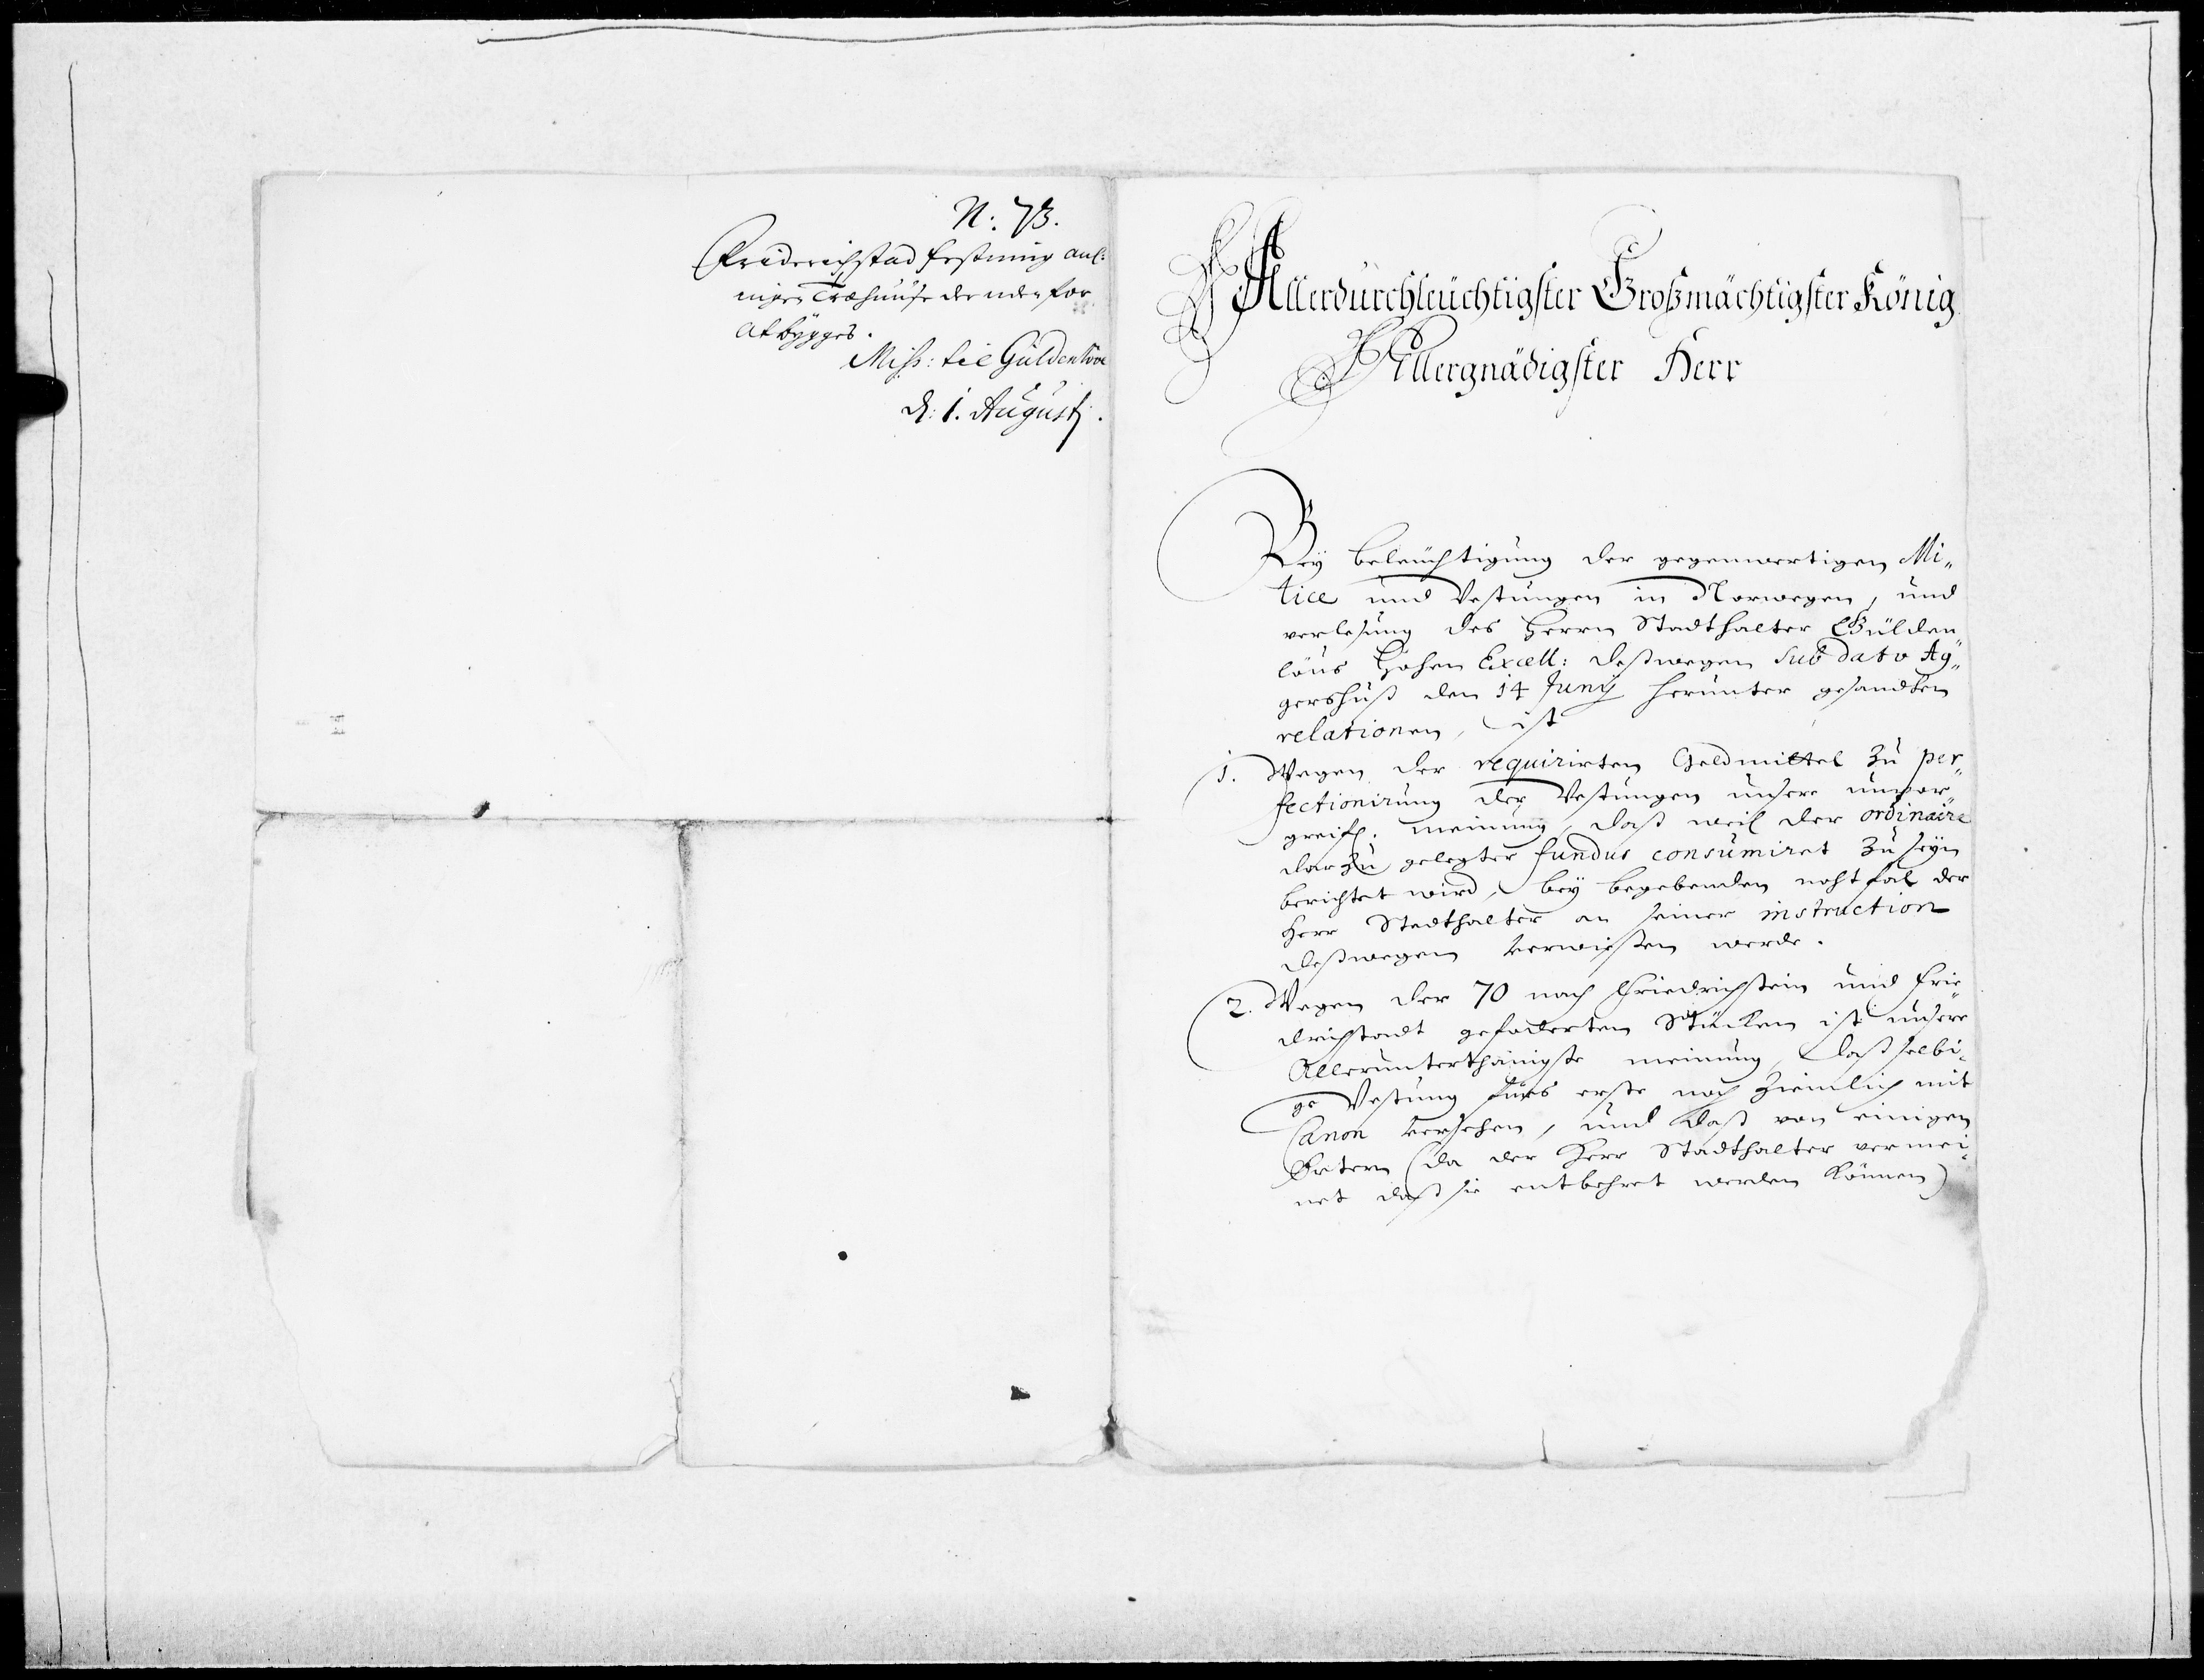 N: 73.
Friderichstad festning anl:
ingen Træhuuse der uden for
at bÿgges.
Miss: til Güldenlöve
d: 1. Augustj.
Allerdurchleuchtigster Großmächtigster König
Allergnädigster Herr
Beÿ beleuchtigung der gegenwertigen Mi„
lice und Vestungen in Norwegen, und
verlesung des Herrn Stadthalter Gülden„
löus Hohen Excell: deßwegen sub dato Ag„
gershuß den 14 Junÿ herunter gesandten
relationen, ist
1. Wegen der requirirten Geldmittel zu per„
fectionirung der Vestungen unsere unvor„
greifl. meinung, daß weil der ordinaire
darzu gelegter fundus consumiret zu seÿn
berichtet wird, beÿ begebenden nohtfal der
Herr Stadthalter an seiner instruction
deßwegen verwießen werde.
2. Wegen der 70 nach Friedrichstein und Frie„
drichstadt gefoderten Stücken ist unsere
Allerunterthänigste meinung, daß selbi„
ge Vestung fürs erste noch ziemlich mit
Canon versehen, und daß von einigen
Örtern (da der Herr Stadthalter vermei„
net daß sie entbehret werden können)